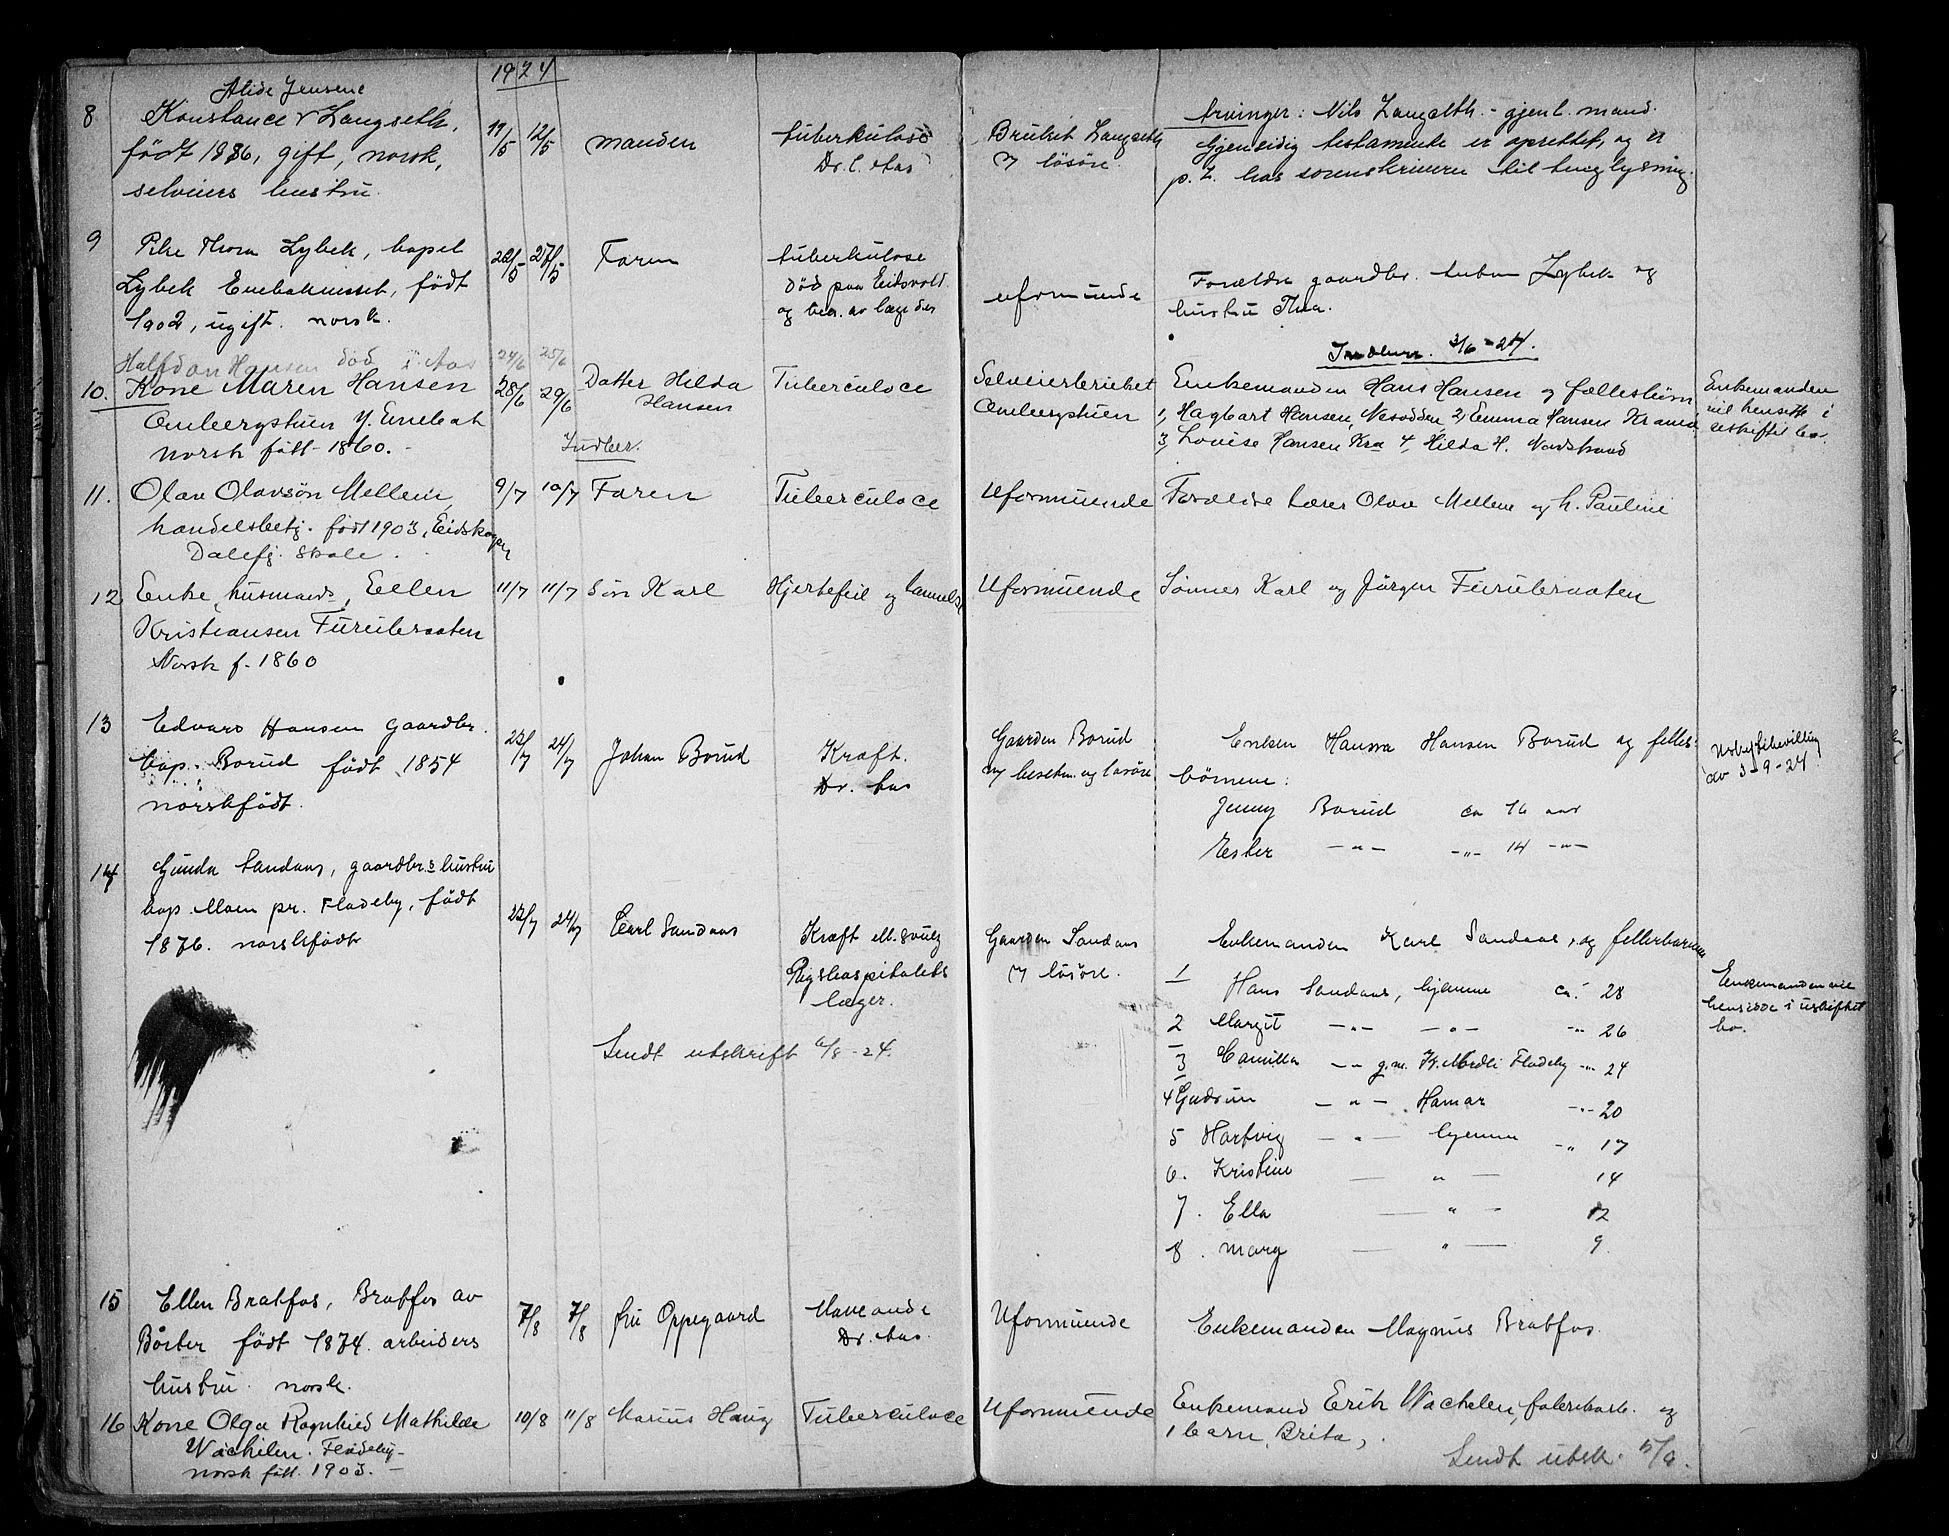 1924
Alide Jensene
8 Konstance Langseth, 11/5 12/5 manden tuberkulose Bruket Langseth Arvinger: Nils Langseth - gjenl. mand.
født 1886, gift, norsk, Dr. C. Aas løsøre. Gjensidig testamente er oprettet, og er
selveiers hustru p. t. hos sorenskriveren til tinglysning.
9 Pike Thora Lybek, bopel 22/5 27/5 Faren tuberkulose
Lybek Enebaknesset, født død paa Eidsvold uformuende Forældre gaardbr. Anton Lybek og
1902, ugift. norsk. og beh. av læge der hustru Thea.
Indberr. 3/6 - 24.
Halfdan Hansen død i Aas 24/6 25/6
10. Kone Maren Hansen 28/6 29/6 Datter Hilda Hansen Tuberculoce Selveierbruket Enkemanden Hans Hansen og fællesbørn Enkemanden
Ombergstuen Y. Enebak Ombergstuen 1, Hagbart Hansen, Nesodden 2, Emma Hansen Krania vil hensitte i
norsk født - 1860. - Indber. 3, Louise Hansen Kra 4, Hilda H. Nordstrand uskiftet bo.
11. Olav Olavsøn Mellem 9/7 10/7 Faren Tuberculoce Uformuende Forældre Lærer Olav Mellem og h. Pauline
handelsbetj. født 1903, Eidskogen
Dalefj. Skole.
12 Enke, husmands, Eellen 11/7 11/7 Søn Karl Hjertefeil og lammelse Uformuende Sønner Karl og Jørgen Furubraaten
Kristiansen Furubraaten
Norsk f. 1860
13 Edvard Hansen gaardbr. 22/7 24/7 Johan Borud Kræft. Gaarden Borud Enken Hanna Hansen Borud og felles- Uskiftebevilling
bop. Borud født 1854 Dr. Aas m/ besetn. og løsøre børnene: av 3-9-24
norskfødt. Jenny Borud ca 16 aar
Ester -"- -"- 14 -"-
14 Gunda Sandaas, gaardbr.s hustru
bop. Moen pr. Fladeby, født 22/7 24/7 Carl Sandaas Kræft ell. svulst Gaarden Sandaas Enkemanden Karl Sandaas, og fellesbarnene
1876. norskfødt Rigshospitalets m/ løsøre. 1 Hans Sandaas, hjemme ca. 28 Enkemanden vil
læger. 2 Margit -"- -"- -"- 26 hensidde i uskiftet
Sendt utskrift 6/8 - 24. 3 Camilla -"- g.m. K. Modli Fladeby -"- 24 bo.
4 Gudrun -"- Hamar -"- 20
5 Hartvig -"- hjemme -"- 17
6. Kristine -"- 14
7. Ella -"- 12
8. Marg -"- 9.
15 Ellen Bratfos, Bratfos av 7/8 7/8 fru Oppegaard Mave onde Uformuende Enkemanden Magnus Bratfos.
Børter født 1874. arbeiders Dr. Aas.
hustru. norsk.
16 Kone Olga Ragnhild Mathilde 10/8 11/8 Marius Haug Tuberculoce Uformuende Enkemand Erik Wachelen, fabrikarb. og
Wachelen. Fladeby - 1 barn, Brita,
norsk født. 1903. - Sendt utsk.